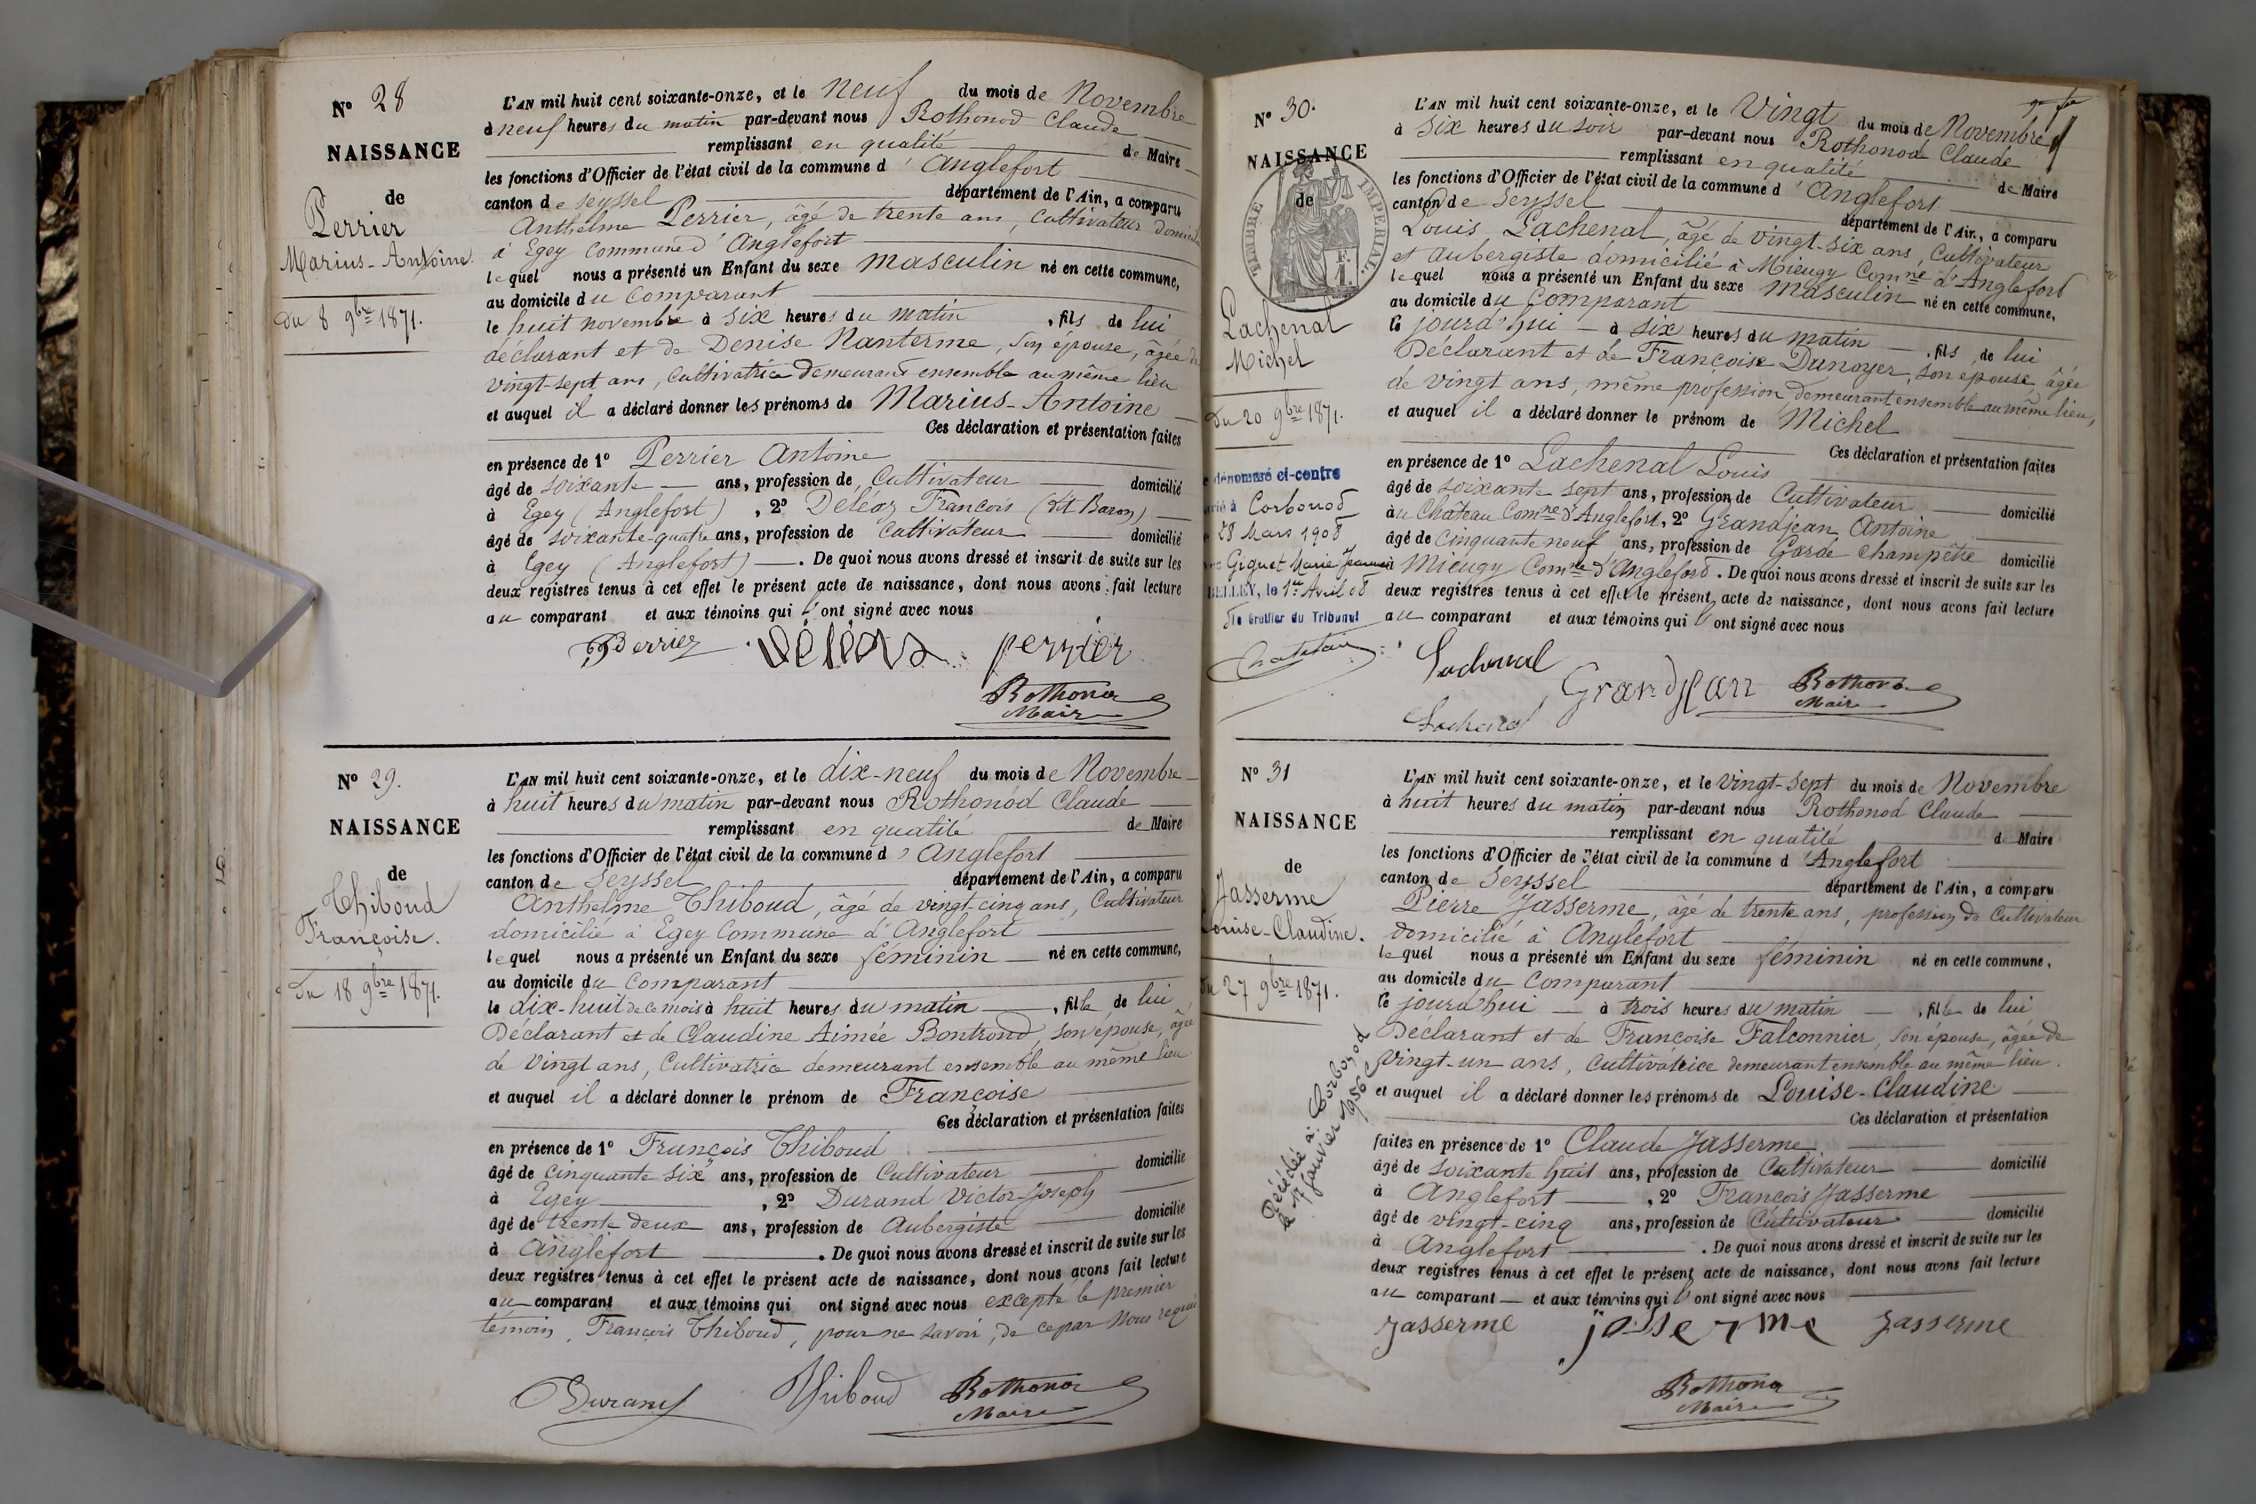 N° 28
NAISSANCE
de
Perrier
Marius-Antoine.
du 8 9bre 1871.
L'AN mil huit cent soixante-onze, et le neuf du mois de Novembre
à neuf heures du matin par-devant nous Rothonod Claude
remplissant en qualité de Maire
les fonctions d'Officier de l'état civil de la commune d'Anglefort
canton de Seyssel département de l'Ain, a comparu
Anthelme Perrier, âgé de trente ans, Cultivateur
à Egey Commune d'Anglefort
lequel nous a présenté un Enfant du sexe masculin né en cette commune,
au domicile du Comparant
le huit novembre à six heures du matin, fils de lui
déclarant et de Denise Nanterme, son épouse, âgée de
vingt-sept ans, Cultivatrice demeurant ensemble au même lieu
et auquel il a déclaré donner les prénoms de Marius-Antoine
Ces déclaration et présentation faites
en présence de 1° Perrier Antoine
âgé de soixante ans, profession de Cultivateur domicilié
à Egey (Anglefort), 2° Deléaz François (dit Baron)
âgé de soixante-quatre ans, profession de Cultivateur domicilié
à Egey (Anglefort). De quoi nous avons dressé et inscrit de suite sur les
deux registres tenus à cet effet le présent acte de naissance, dont nous avons fait lecture
au comparant et aux témoins qui l'ont signé avec nous
Perrier Déléaz perrier
Rothonod
Maire
N° 29.
NAISSANCE
de
Thiboud
Françoise.
du 18 9bre 1871.
L'AN mil huit cent soixante-onze, et le dix-neuf du mois de Novembre
à huit heures du matin par-devant nous Rothonod Claude
remplissant en qualité de Maire
les fonctions d'Officier de l'état civil de la commune d'Anglefort
canton de Seyssel département de l'Ain, a comparu
Anthelme Thiboud, âgé de vingt-cinq ans, Cultivateur
domicilié à Egey Commune d'Anglefort
lequel nous a présenté un Enfant du sexe féminin né en cette commune,
au domicile du Comparant
le dix-huit de ce mois à huit heures du matin, fille de lui
Déclarant et de Claudine Aimée Bontrond, son épouse, âgée
de Vingt ans, Cultivatrice demeurant ensemble au même lieu
et auquel il a déclaré donner le prénom de Françoise
Ces déclaration et présentation faites
en présence de 1° François Thiboud
âgé de cinquante six ans, profession de Cultivateur domicilié
à Egey, 2° Durand Victor-Joseph
âgé de trente deux ans, profession de Aubergiste domicilié
à Anglefort. De quoi nous avons dressé et inscrit de suite sur les
deux registres tenus à cet effet le présent acte de naissance, dont nous avons fait lecture
au comparant et aux témoins qui ont signé avec nous excepté le premier
témoin, François Thiboud, pour ne savoir, de ce par Nous requis
Durand Thiboud Rothonod
Maire
N° 30.
NAISSANCE
de
TIMBRE IMPERIAL.
Lachenal
Michel
du 20 9bre 1871.
dénommé ci-contre
marié à Corbonod
28 Mars 1908
Giguet Marie
BELLEY, le 1er Avril 08
Le Greffier du Tribunal
L'AN mil huit cent soixante-onze, et le Vingt du mois de Novembre
à six heures du soir par-devant nous Rothonod Claude
remplissant en qualité de Maire
les fonctions d'Officier de l'état civil de la commune d'Anglefort
canton de Seyssel département de l'Ain, a comparu
Louis Lachenal, âgé de vingt-six ans, Cultivateur
et Aubergiste domicilié à Mieugy Comne d'Anglefort
lequel nous a présenté un Enfant du sexe Masculin né en cette commune,
au domicile du Comparant
le jourd'hui à six heures du matin, fils de lui
Déclarant et de Françoise Dunoyer, son épouse, âgée
de vingt ans, même profession demeurant ensemble au même lieu,
et auquel il a déclaré donner le prénom de Michel
Ces déclaration et présentation faites
en présence de 1° Lachenal Louis
âgé de soixante sept ans, profession de Cultivateur domicilié
au Château Comne d'Anglefort, 2° Grandjean Antoine
âgé de Cinquante neuf ans, profession de Garde Champêtre domicilié
à Mieugy Comne d'Anglefort. De quoi nous avons dressé et inscrit de suite sur les
deux registres tenus à cet effet le présent acte de naissance, dont nous avons fait lecture
au comparant et aux témoins qui ont signé avec nous
Lachenal Grandjean Rothonod
Maire
Lachenal
N° 31
NAISSANCE
de
Jasserme
Louise-Claudine.
du 27 9bre 1871.
Décédée à Corbonod
le 17 janvier 1956
L'AN mil huit cent soixante-onze, et le vingt-sept du mois de Novembre
à huit heures du matin par-devant nous Rothonod Claude
remplissant en qualité de Maire
les fonctions d'Officier de l'état civil de la commune d'Anglefort
canton de Seyssel département de l'Ain, a comparu
Pierre Jasserme, âgé de trente ans, profession de Cultivateur
domicilié à Anglefort
lequel nous a présenté un Enfant du sexe féminin né en cette commune,
au domicile du Comparant
le jourd'hui à trois heures du matin, fille de lui
Déclarant et de Françoise Falconnier, son épouse, âgée de
Vingt-un ans, Cultivatrice demeurant ensemble au même lieu.
et auquel il a déclaré donner les prénoms de Louise-Claudine
Ces déclaration et présentation
faites en présence de 1° Claude Jasserme
âgé de soixante huit ans, profession de Cultivateur domicilié
à Anglefort, 2° François Jasserme
âgé de vingt-cinq ans, profession de Cultivateur domicilié
à Anglefort. De quoi nous avons dressé et inscrit de suite sur les
deux registres tenus à cet effet le présent acte de naissance, dont nous avons fait lecture
au comparant et aux témoins qui l'ont signé avec nous
Jasserme jasserme Jasserme
Rothonod
Maire